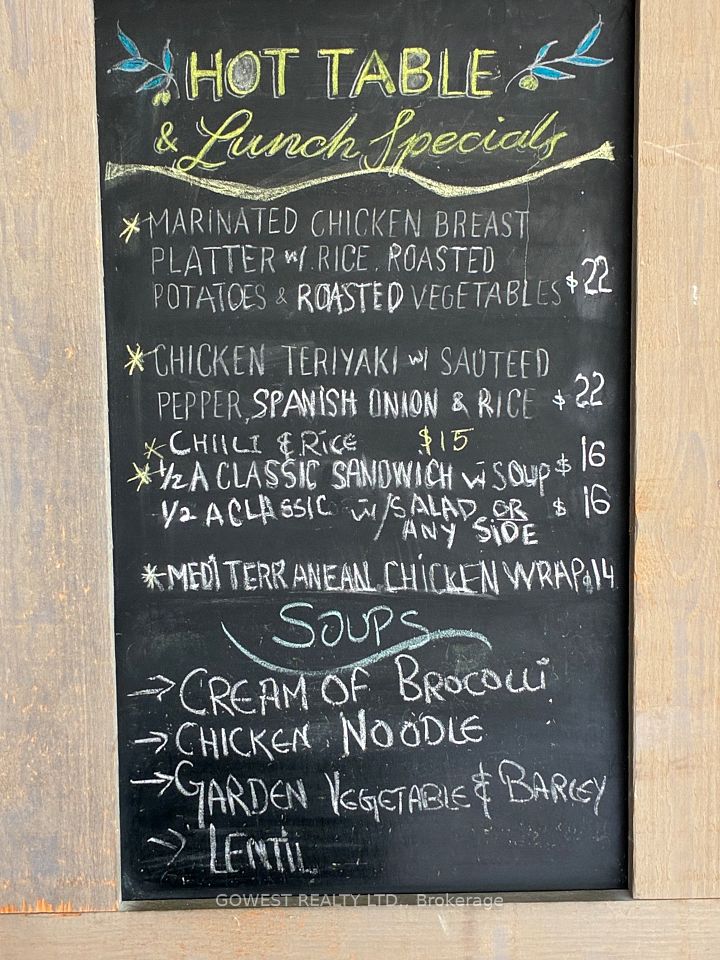 HOT TABLE
& Lunch Specials
* MARINATED CHICKEN BREAST
PLATTER w/. RICE, ROASTED
POTATOES & ROASTED VEGETABLES $22
* CHICKEN TERIYAKI w/ SAUTEED
PEPPER, SPANISH ONION & RICE $22
* CHIILI & RICE $15
* 1/2 A CLASSIC SANDWICH w/ SOUP $16
1/2 A CLASSIC w/ SALAD OR $16
ANY SIDE
* MEDITERRANEAN CHICKEN WRAP $14
SOUPS
→ CREAM OF BROCOLLI
→ CHICKEN NOODLE
→ GARDEN VEGETABLE & BARLEY
→ LENTIL
GOWEST REALTY LTD., Brokerage